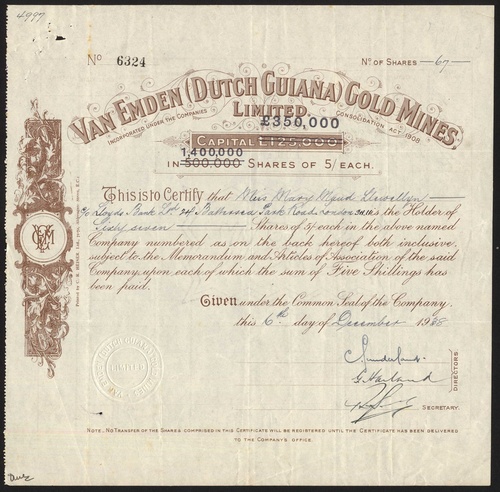 4997
No 6324
No OF SHARES — 67 —
VAN EMDEN (DUTCH GUIANA) GOLD MINES
LIMITED.
INCORPORATED UNDER THE COMPANIES CONSOLIDATION ACT, 1908.
£350,000
CAPITAL £125,000
1,400,000
IN 500,000 SHARES OF 5/ EACH.
This is to Certify that Miss Mary Maud Llewellyn
c/o Lloyds Bank Ltd 24 Battersea Park Road London S.W.11 is the Holder of
Sixty seven Shares of 5/- each in the above named
Company numbered as on the back hereof both inclusive,
subject to the Memorandum and Articles of Association of the said
Company, upon each of which the sum of Five Shillings has
been paid.
Given under the Common Seal of the Company,
this 6th day of December 1928
C. Sunderland
G. Harland
DIRECTORS
SECRETARY.
NOTE. NO TRANSFER OF THE SHARES COMPRISED IN THIS CERTIFICATE WILL BE REGISTERED UNTIL THE CERTIFICATE HAS BEEN DELIVERED
TO THE COMPANY'S OFFICE.